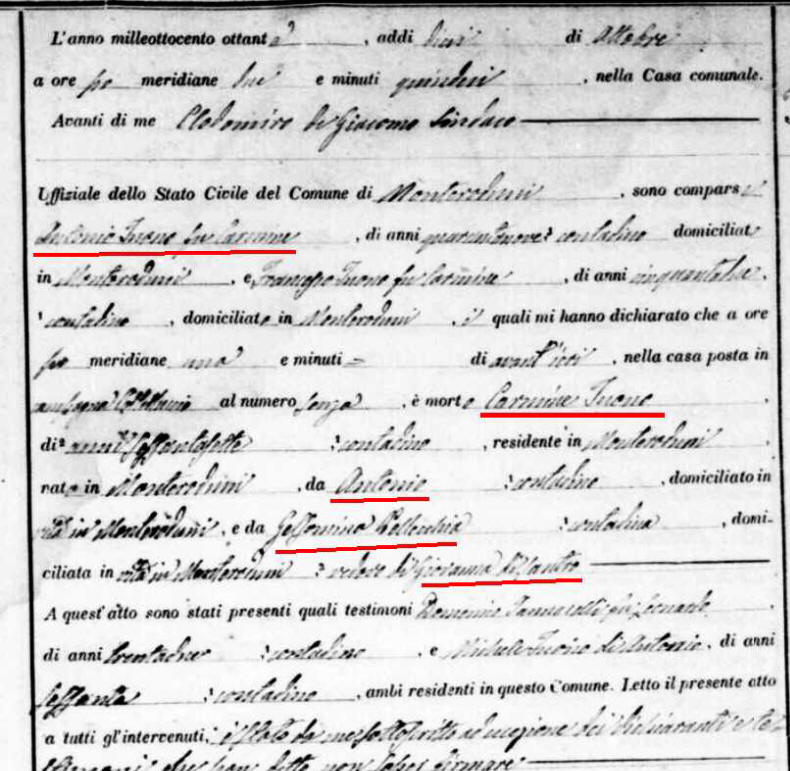 L'anno milleottocento ottanta, addi dieci di Ottobre
a ore po meridiane due e minuti quindici, nella Casa comunale.
Avanti di me Clodomiro di Giacomo Sindaco
Uffiziale dello Stato Civile del Comune di Monteroduni, sono comparsi
Antonio Iuono fu Carmine, di anni quarantanove, contadino domiciliato
in Monteroduni, e Iuono fu Carmine, di anni
contadino, domiciliato in Monteroduni, i quali mi hanno dichiarato che a ore
po meridiane una e minuti = di avant'ieri, nella casa posta in
campagna al numero senza, è morto Carmine Iuono
di anni Settantasette contadino, residente in Monteroduni
nato in Monteroduni, da Antonio contadino, domiciliato in
vita in Monteroduni, e da Gelsomina Pellecchia contadina, domi-
ciliata in vita in Monteroduni vedovo di Giovanna di Santo
A quest'atto sono stati presenti quali testimoni Domenico fu
di anni trentadue contadino e Michele Iuono di Antonio, di anni
Sessanta contadino, ambi residenti in questo Comune. Letto il presente atto
a tutti gl'intervenuti, è stato da me sottoscritto ad eccezione dei dichiaranti e te
stimoni che han detto non saper firmare